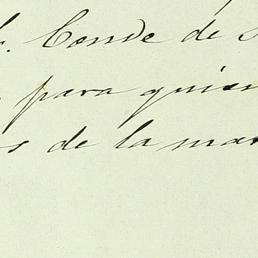 Conde de
para quien
de la mar